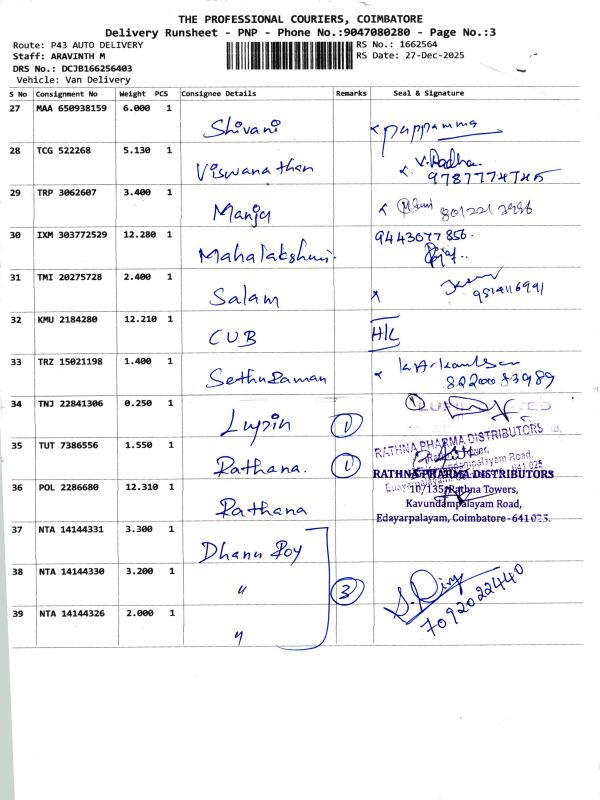 THE PROFESSIONAL COURIERS, COIMBATORE
Delivery Runsheet - PNP - Phone No.:9047080280 - Page No.:3
Route: P43 AUTO DELIVERY
Staff: ARAVINTH M
DRS No.: DCJB166256403
Vehicle: Van Delivery
RS No.: 1662564
RS Date: 27-Dec-2025
S No Consignment No Weight PCS Consignee Details Remarks Seal & Signature
27 MAA 650938159 6.000 1 Shivani pappamma
28 TCG 522268 5.130 1 Viswanathan V. Radha
29 TRP 3062607 3.400 1 Manju
30 IXM 303772529 12.280 1 Mahalakshmi. 9443077856.
31 TMI 20275728 2.400 1 Salam
32 KMU 2184280 12.210 1 CUB H/L
33 TRZ 15021198 1.400 1 Sethuraman 8220083989
34 TNJ 22841306 0.250 1 Lupin 1 1
35 TUT 7386556 1.550 1 Rathana. 1
RATHNA PHARMA DISTRIBUTORS
Kavundampalayam Road,
641 025
36 POL 2286680 12.310 1 Rathana
RATHNA PHARMA DISTRIBUTORS
10/135, Rathna Towers,
Kavundampalayam Road,
Edayarpalayam, Coimbatore-641 025.
37 NTA 14144331 3.300 1 Dhanu Roy
38 NTA 14144330 3.200 1 " 3 7092022440
39 NTA 14144326 2.000 1 "